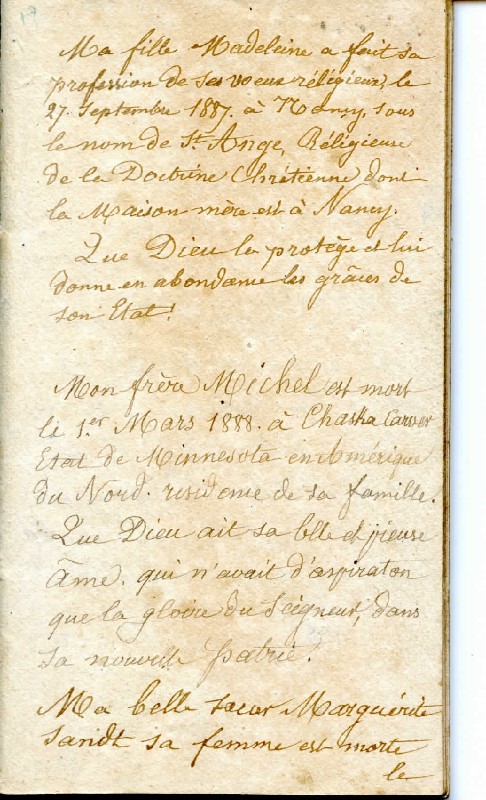 Ma fille Madeleine a fait sa
profession de ses voeux réligieux, le
27. Septembre 1887. à Nancy, sous
le nom de St Ange, Réligieuse
de la Doctrine Chrétienne dont
la Maison mère est à Nancy.
Que Dieu la protège et lui
donne en abondance les grâces de
son Etat!
Mon frère Michel est mort
le 1.er Mars 1888. à Chaska Carver
Etat de Minnesota en Amérique
du Nord. residence de sa famille.
Que Dieu ait sa blle et pieuse
âme. qui n'avait d'aspiraton
que la gloire du Seigneur, dans
sa nouvelle patrie!
Ma belle soeur Marguérite
Sandt sa femme est morte
le